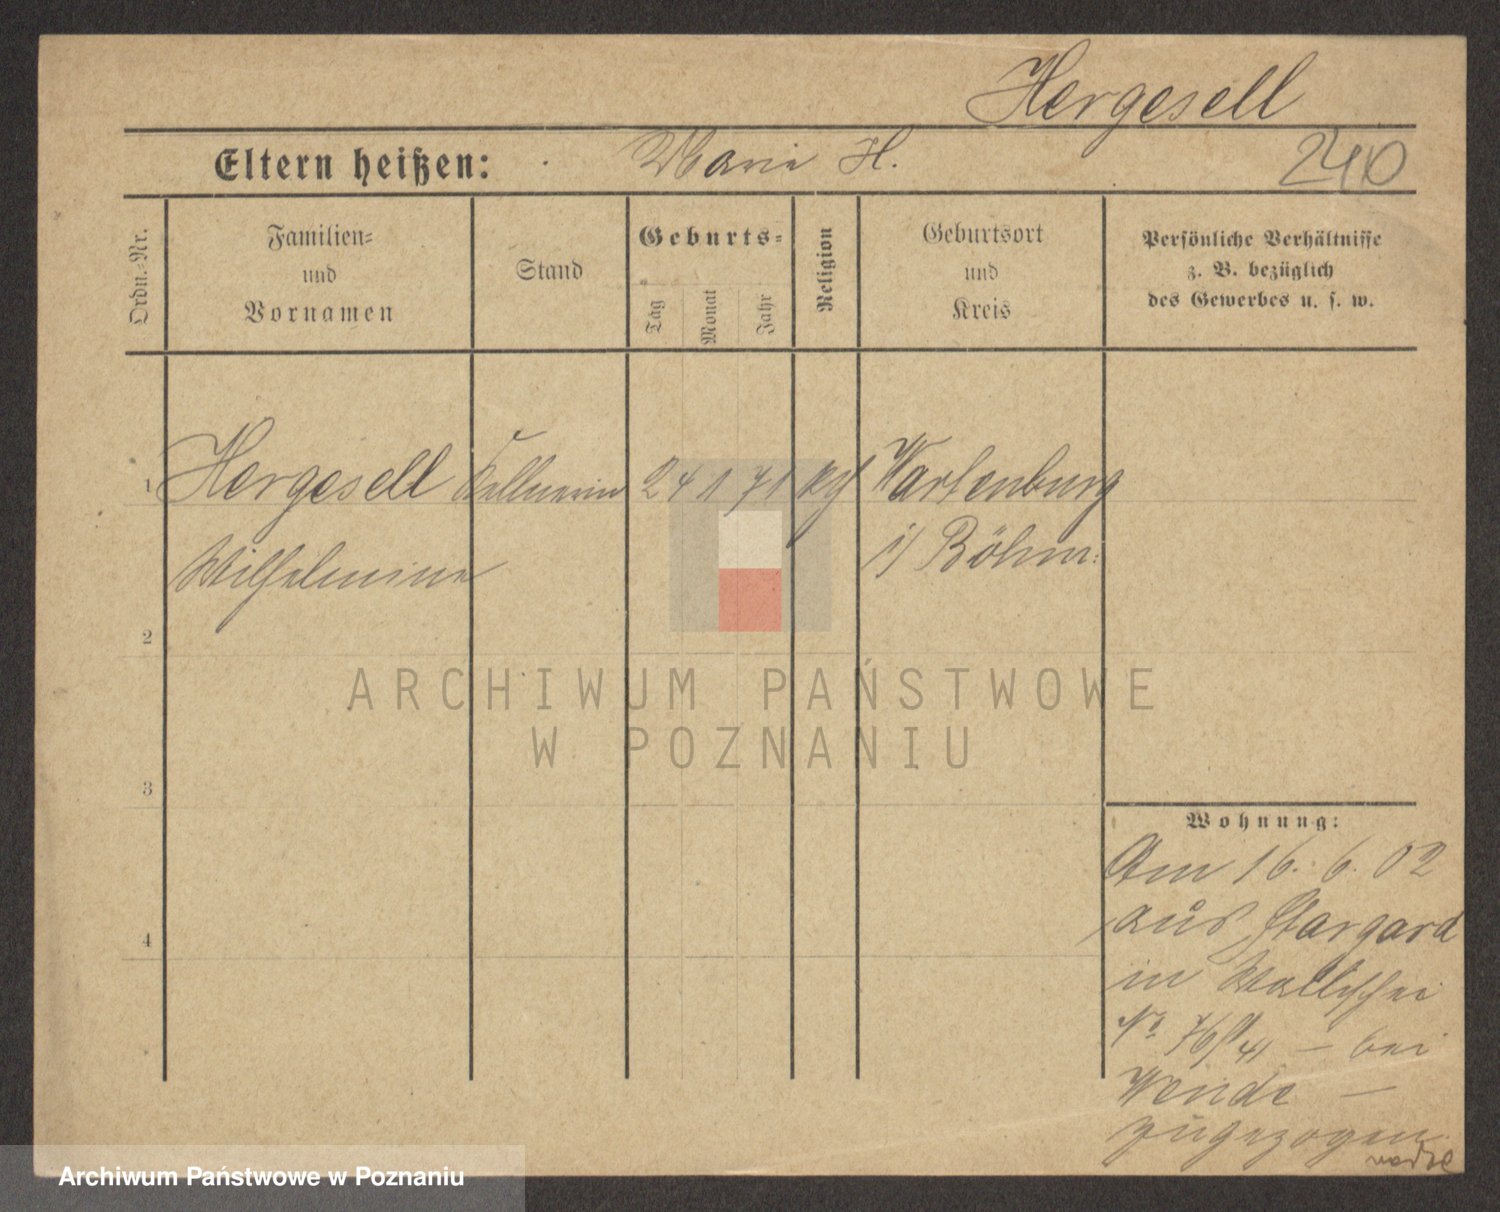 Hergesell
Eltern heißen: Marie H.
240
Ordn.-Nr.
Familien-
und
Vornamen
Stand
Geburts-
Tag
Monat
Jahr
Religion
Geburtsort
und
Kreis
Persönliche Verhältnisse
z. B. bezüglich
des Gewerbes u. s. w.
1 Hergesell Kellnerin 24 1 71 Wartenburg
Wilhelmine i/ Böhm:
2
ARCHIWUM PAŃSTWOWE
W POZNANIU
3
Wohnung:
Am 16. 6. 02
aus Stargard
4
in Wallischei
No 76/ 41 – bei
Weide –
zugezogen
Archiwum Państwowe w Poznaniu